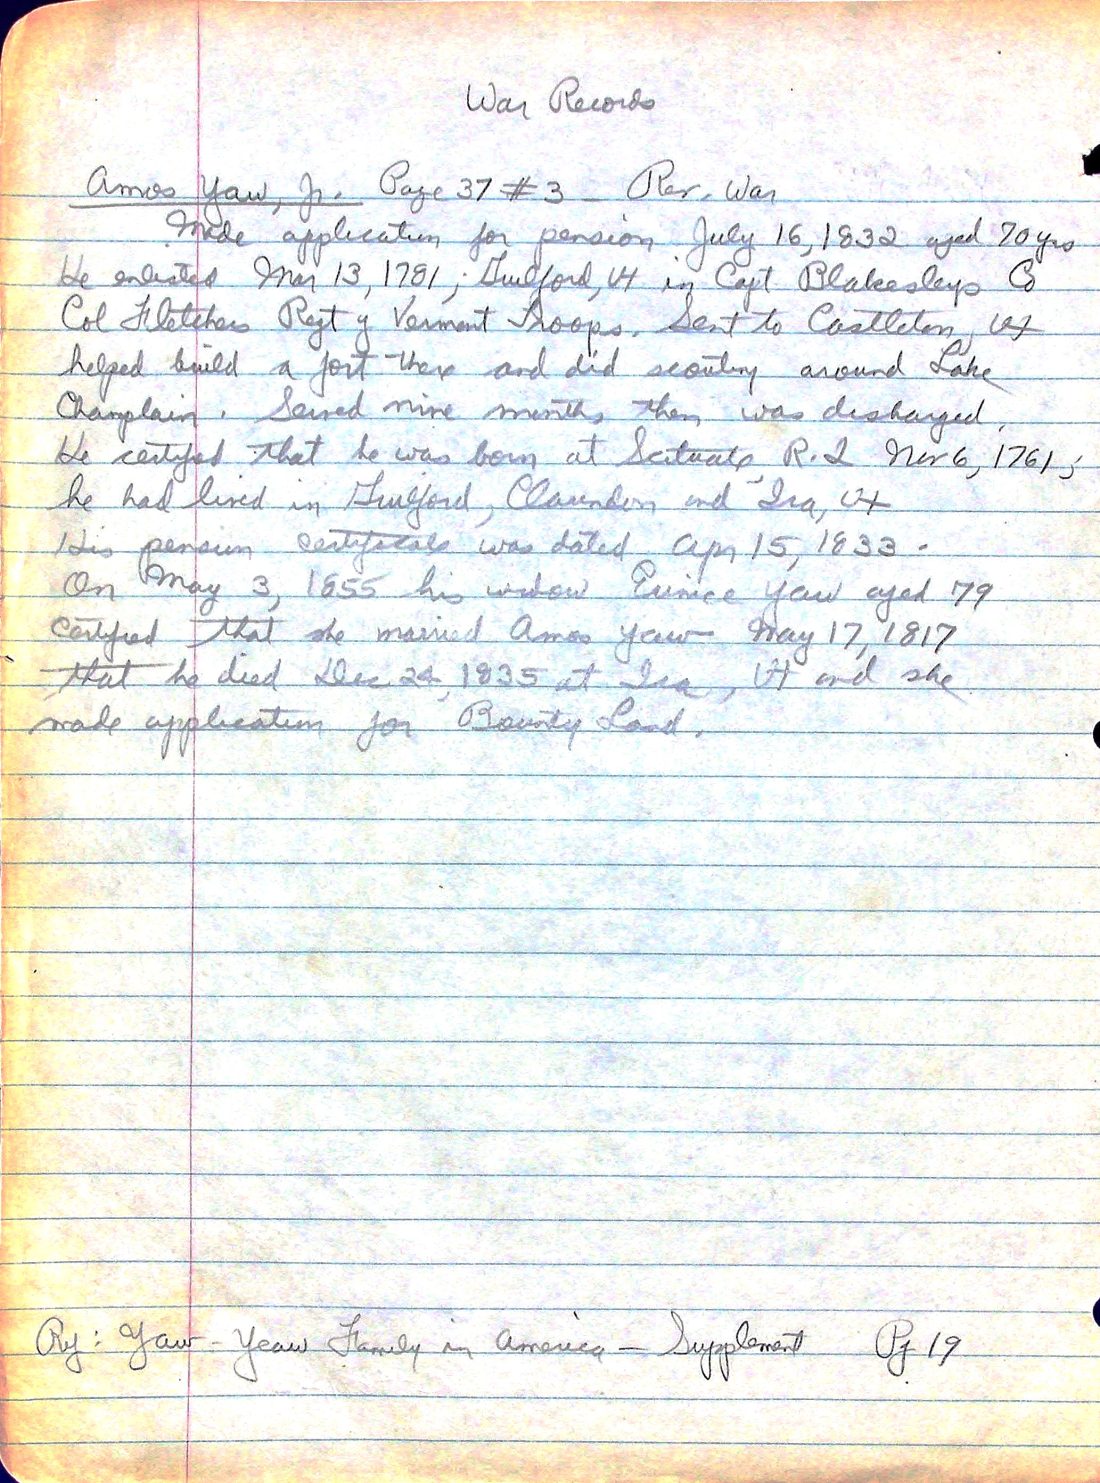 War Records
Amos Yaw, Jr. Page 37 # 3 - Rev. War
Made application for pension July 16, 1832 aged 70 yrs
He enlisted Mar 13, 1781; Guilford, Vt in Capt Blakesleys Co
Col Fletchers Regt of Vermont Troops. Sent to Castleton, Vt
helped build a fort there and did scouting around Lake
Champlain. Served nine months then was discharged.
He certifed that he was born at Scituate, R.I Nov 6, 1761;
he had lived in Guilford, Clarendon and Ira, Vt
His pension certificate was dated Apr 15, 1833.
On May 3, 1855 his widow Eunice Yaw aged 79
certifed that she married Amos Yaw May 17, 1817
that he died Dec 24, 1835 at Ira, Vt and she
made application for Bounty Land.
Rf: Yaw - Yeaw Family in America - Supplement Pg 19